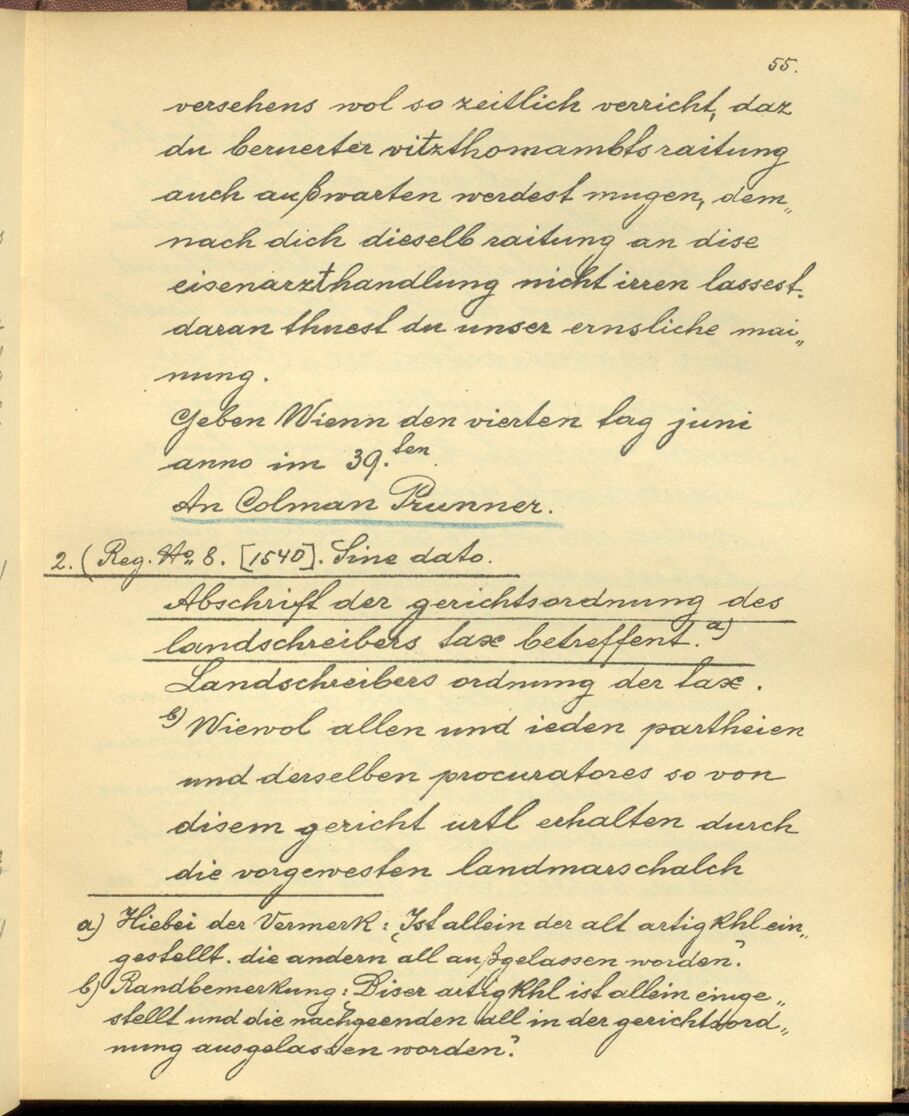 55.
versehens wol so zeitlich verricht, daz
du beruerter vitzthomambts raitung
auch außwarten werdest mugen, dem„
nach dich dieselb raitung an dise
eisenarzthandlung nicht irren lassest.
daran thuest du unser ernsliche mai„
nung.
Geben Wienn den vierten tag juni
anno im 39.ten
An Colman Prunner.
2. (Reg. No. 8. [1540]. Sine dato.
Abschrift der gerichtsordnung des
landschreibers tax betreffent. a)
Landschreibers ordnung der tax.
b) Wiewol allen und ieden partheien
und derselben procuratores so von
disem gericht urtl erhalten durch
die vorgewesten landmarschalch
a) Hiebei der Vermerk: „Ist allein der alt artigkhl ein„
gestellt. die andern all außgelassen worden".
b) Randbemerkung: „Diser artigkhl ist allein einge„
stellt und die nachgeenden all in der gerichtsord„
nung ausgelassen worden."